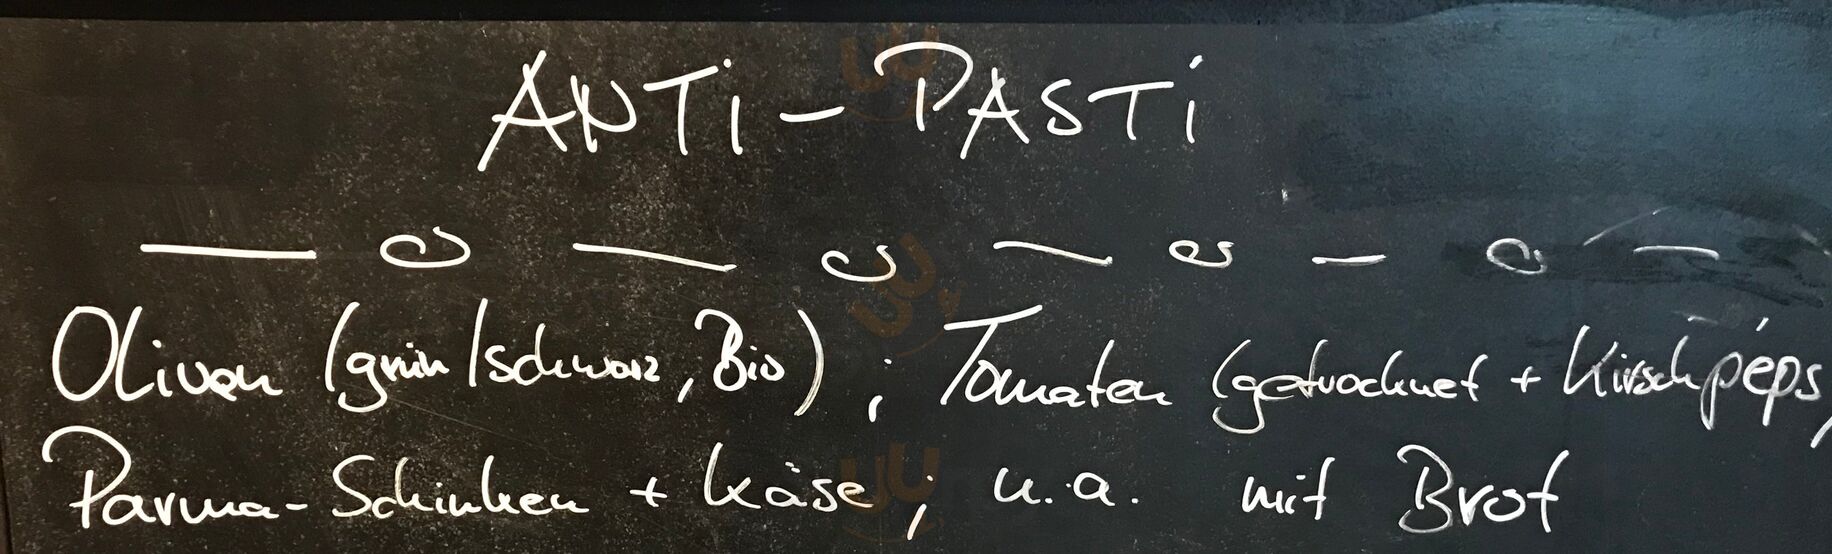 ANTi-PASTi
Oliven (grün/schwarz, Bio); Tomaten (getrocknet + Kirschpéps,
Parma-Schinken + Käse; u.a. mit Brot